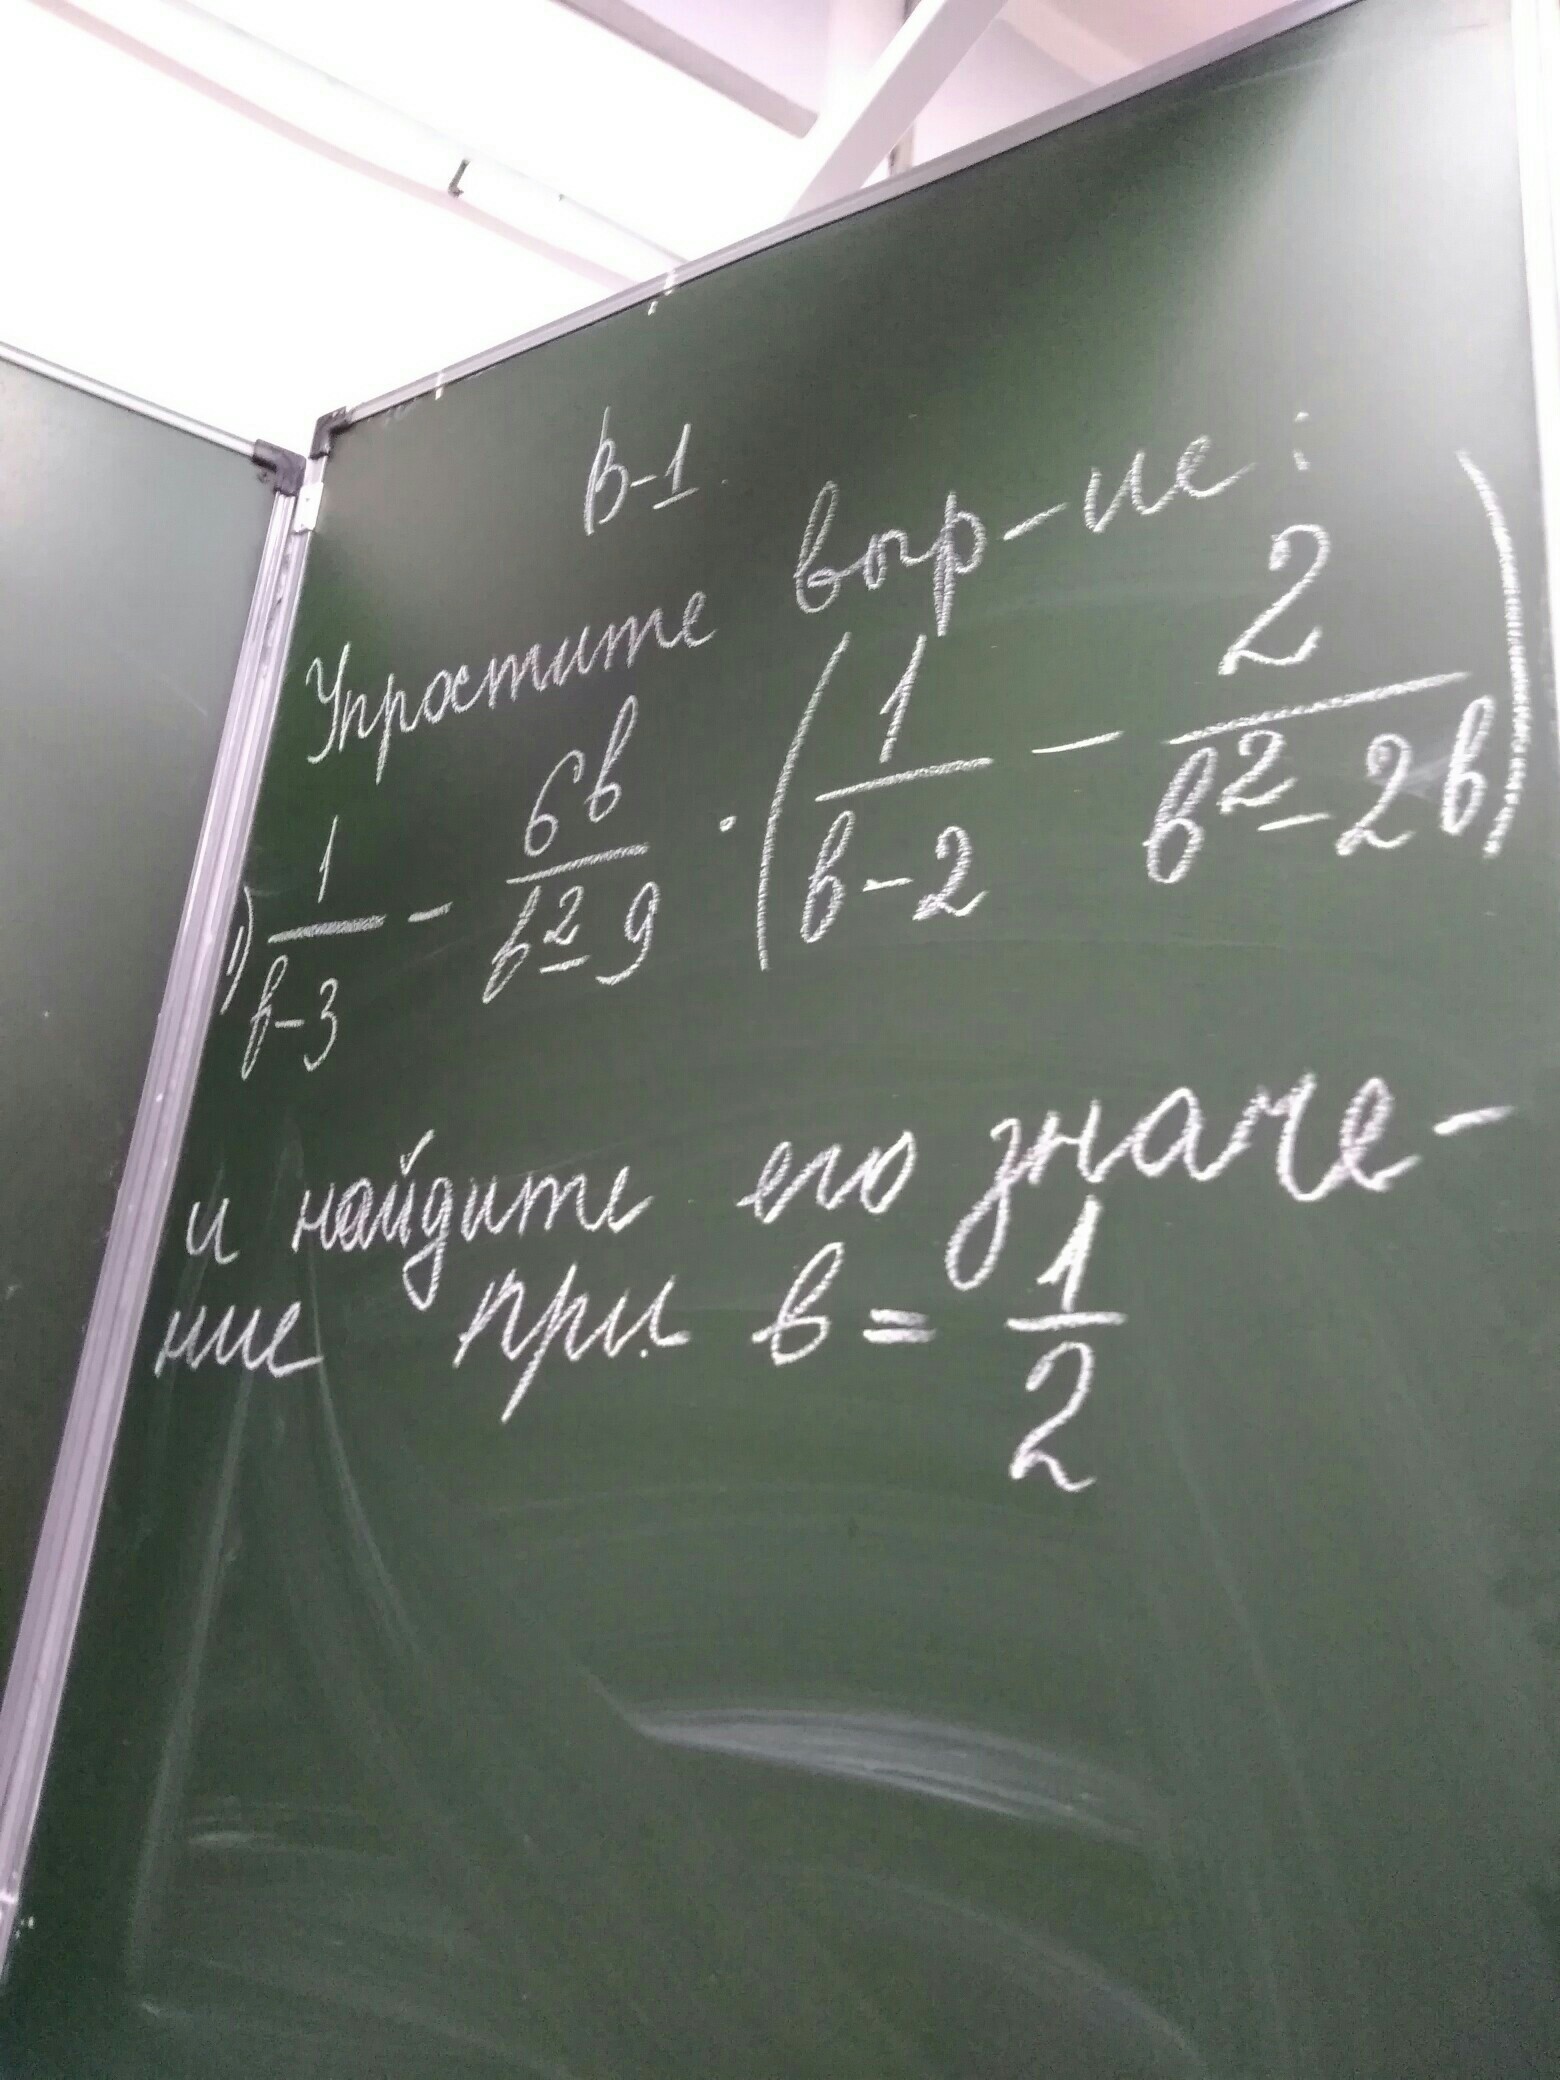 В-1.
Упростите выр-ие:
1) \frac{1}{в-3} - \frac{6в}{в^2-9} · (\frac{1}{в-2} - \frac{2}{в^2-2в})
и найдите его значе-
ние при в = \frac{1}{2}